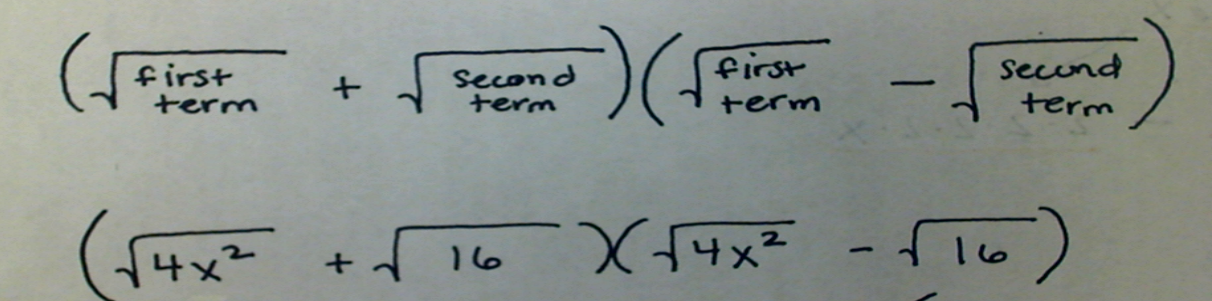 (√first term + √second term)(√first term − √second term)
(√4x² + √16)(√4x² − √16)